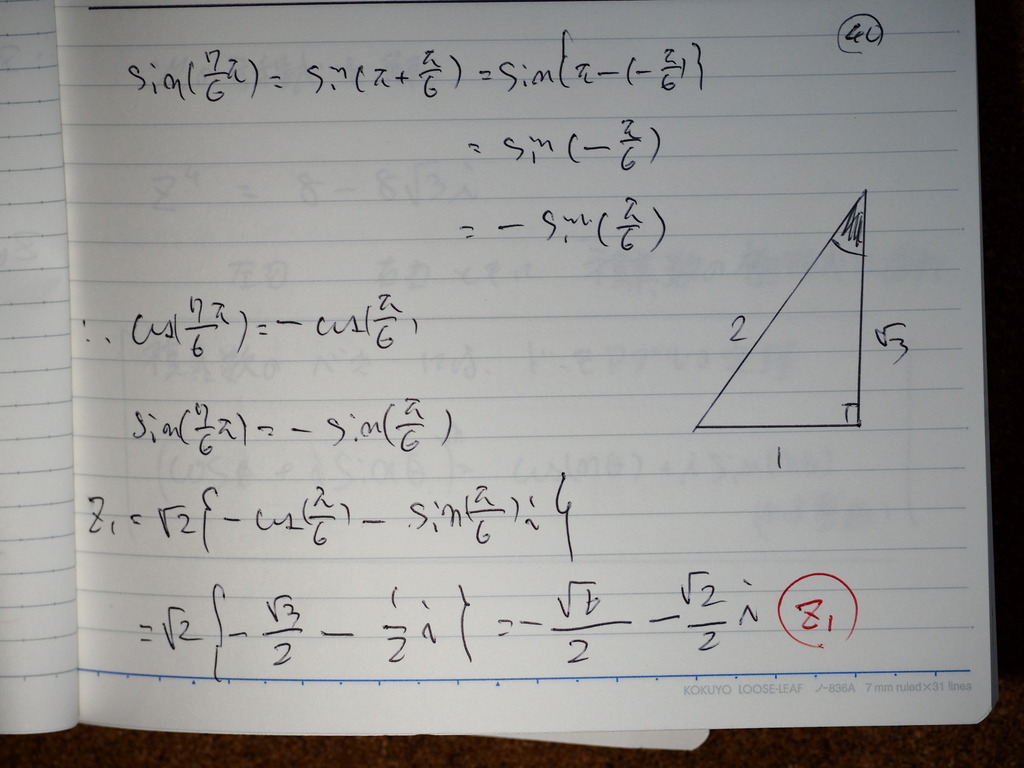 40
sin(7/6 π) = sin(π + π/6) = sin{π - (-π/6)}
= sin(-π/6)
= - sin(π/6)
∴ cos(7π/6) = - cos(π/6)
sin(7/6 π) = - sin(π/6)
2
√3
1
Z₁ = √2{- cos(π/6) - sin(π/6)i}
= √2{- √3/2 - 1/2 i} = - √6/2 - √2/2 i Z₁
KOKUYO LOOSE-LEAF ノ-836A 7 mm ruled×31 lines